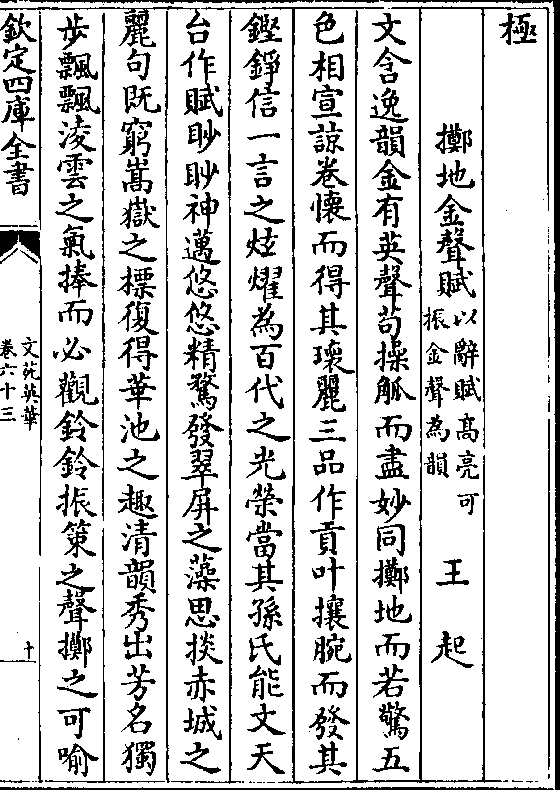 極
擲地金聲賦以辭賦高亮可振金聲為韻 王起
文含逸韻金有英聲茍操觚而盡妙同擲地而若驚五
色相宣諒卷懷而得其瓌麗三品作貢叶攘腕而發其
鏗錚信一言之炫燿為百代之光榮當其孫氏能文天
台作賦眇眇神邁悠悠精騖發翠屏之藻思掞赤城之
麗句既窮嵩嶽之摽復得華池之趣清韻秀出芳名獨
步飄飄淩雲之氣捧而必觀鈴鈴振策之聲擲之可喻
欽定四庫全書
文苑英華
卷六十三
十